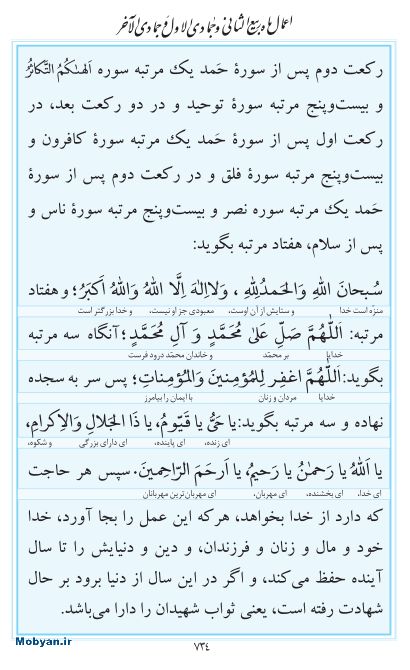 اعمال ماه ربیع الثانی و جمادی الاول و جمادی الآخر
رکعت دوم پس از سورهٔ حَمد یک مرتبه سوره اَلهٰىكُمُ التَّكاثُرُ
و بیست‌وپنج مرتبه سورهٔ توحید و در دو رکعت بعد، در
رکعت اول پس از سورهٔ حَمد یک مرتبه سورهٔ کافرون و
بیست‌وپنج مرتبه سورهٔ فلق و در رکعت دوم پس از سورهٔ
حَمد یک مرتبه سوره نصر و بیست‌وپنج مرتبه سورهٔ ناس و
پس از سلام، هفتاد مرتبه بگوید:
سُبحانَ اللهِ وَالحَمدُلِلّٰهِ ، وَلااِلٰهَ اِلَّا اللهُ وَاللهُ اَكبَرُ؛ و هفتاد
منزّه است خدا و ستایش از آن اوست، معبودی جز او نیست، و خدا بزرگتر است
مرتبه: اَللّٰهُمَّ صَلِّ عَلىٰ مُحَمَّدٍ وَ آلِ مُحَمَّدٍ؛ آنگاه سه مرتبه
خدایا بر محمّد و خاندان محمّد درود فرست
بگوید: اَللّٰهُمَّ اغفِر لِلمُؤمِنينَ وَالمُؤمِناتِ؛ پس سر به سجده
خدایا مردان و زنان با ایمان را بیامرز
نهاده و سه مرتبه بگوید: یا حَیُّ یا قَیّومُ، یا ذَا الجَلالِ وَالاِكرامِ،
ای زنده، ای پاینده، ای دارای بزرگی و شکوه،
یا اَللهُ یا رَحمٰنُ یا رَحیمُ، یا اَرحَمَ الرّاحِمینَ. سپس هر حاجت
ای خدا، ای بخشنده، ای مهربان، ای مهربان‌ترین مهربانان
که دارد از خدا بخواهد، هرکه این عمل را بجا آورد، خدا
خود و مال و زنان و فرزندان، و دین و دنیایش را تا سال
آینده حفظ می‌کند، و اگر در این سال از دنیا برود بر حال
شهادت رفته است، یعنی ثواب شهیدان را دارا می‌باشد.
Mobyan.ir
۷۳٤